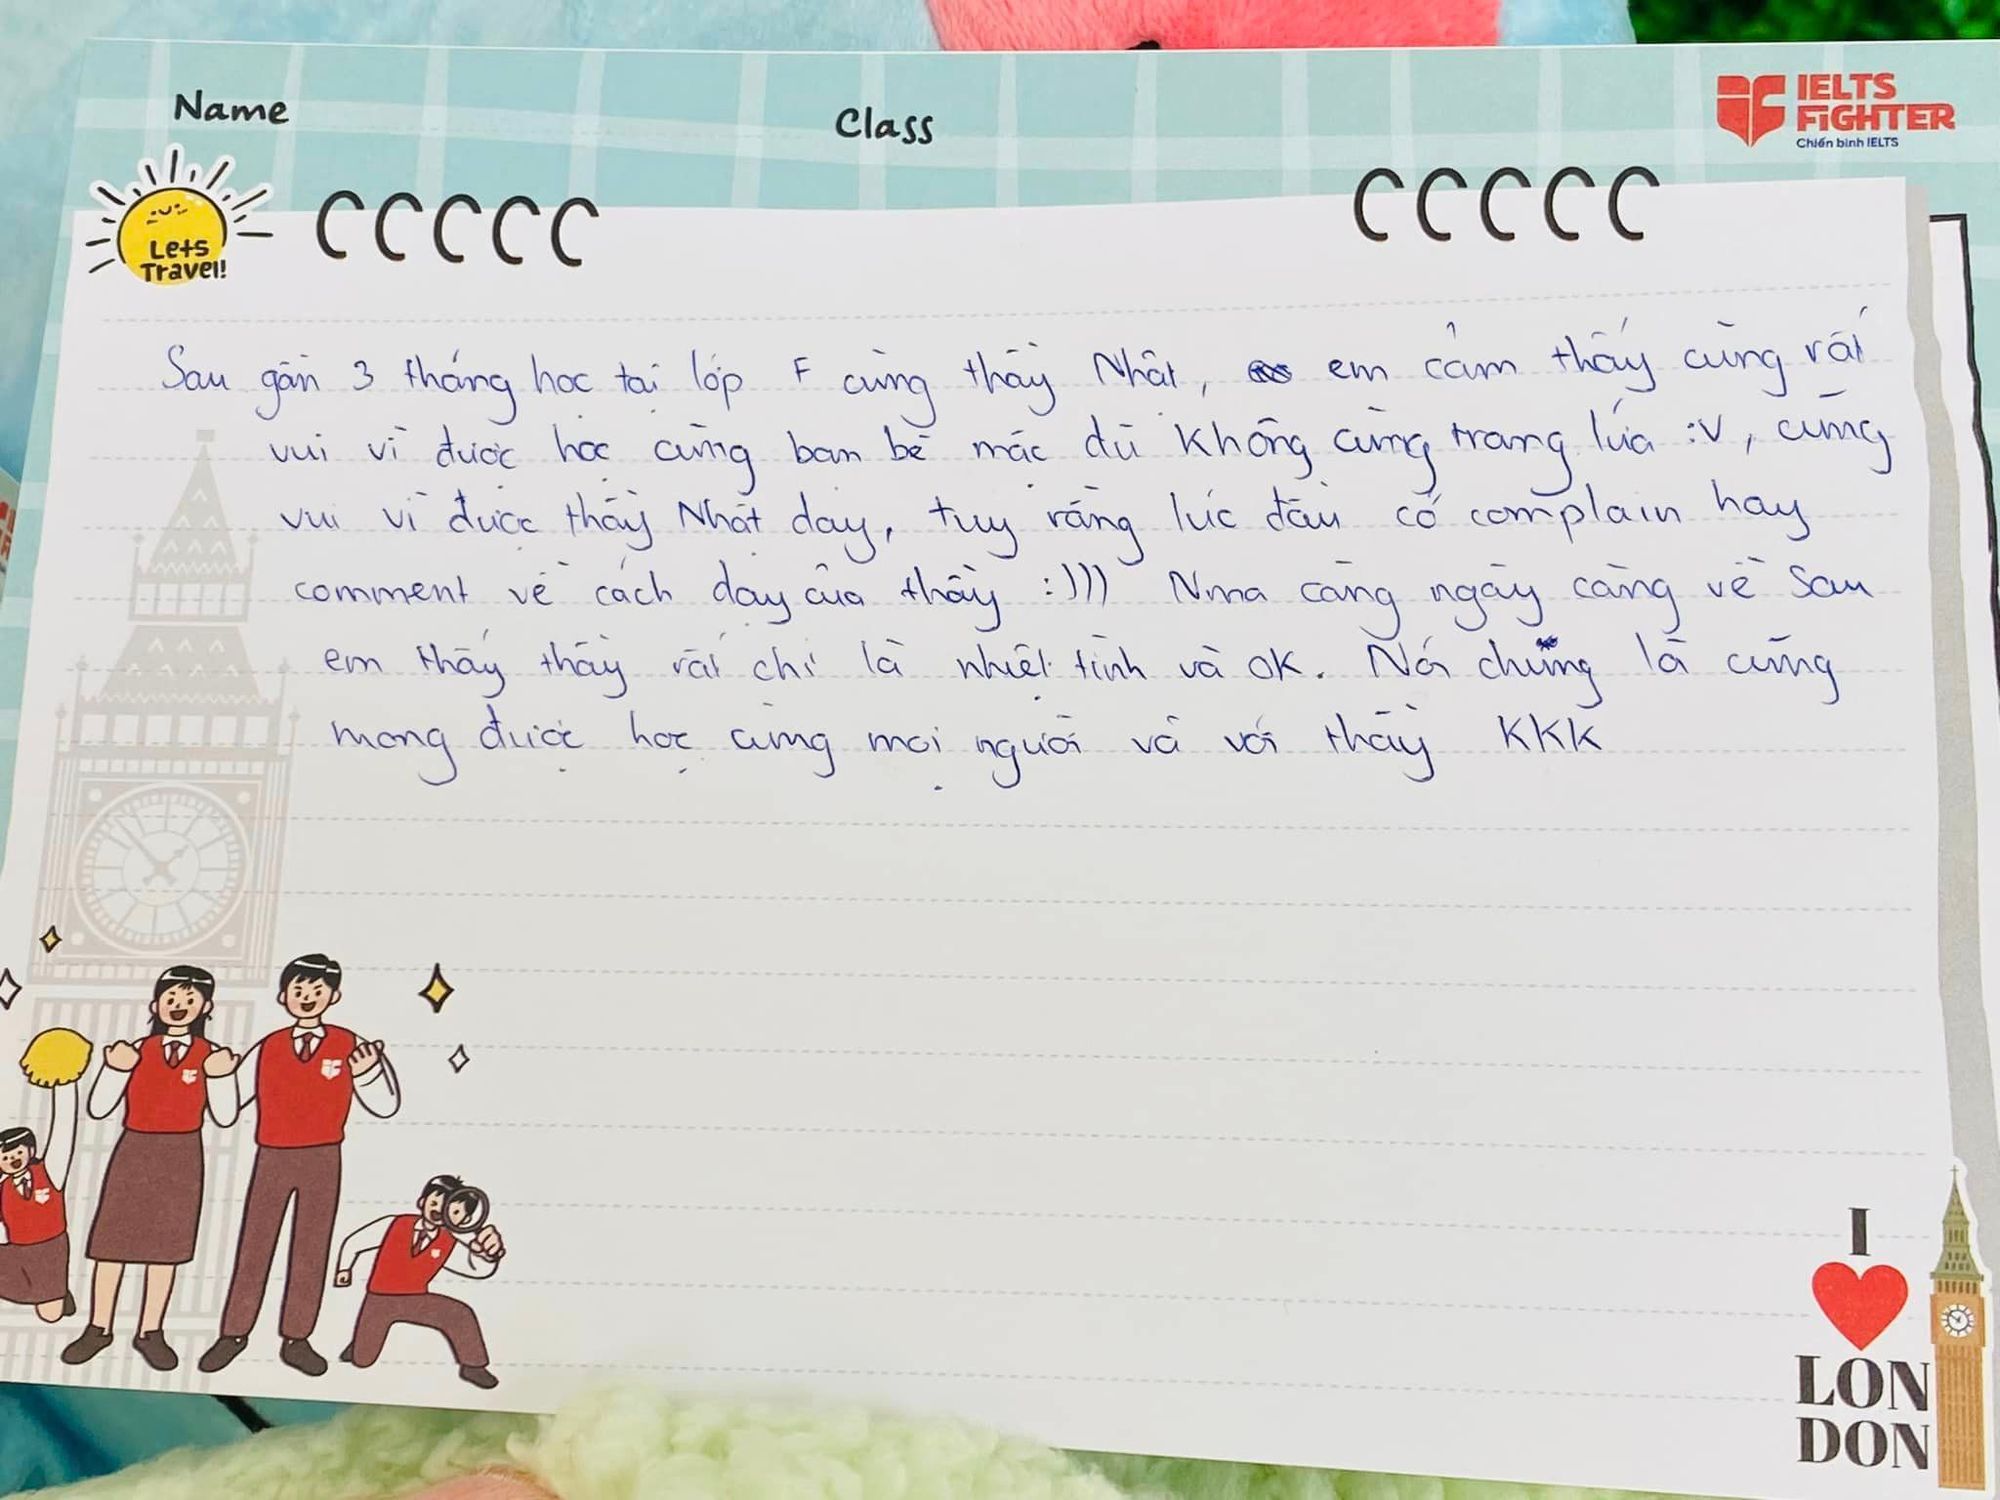 Name
Class
IELTS
FiGHTER
Chiến binh IELTS
Lets
Travel!
Sau gần 3 tháng học tại lớp F cùng thầy Nhật, em cảm thấy cũng rất
vui vì được học cùng bạn bè mặc dù không cùng trang lứa :V, cũng
vui vì được thầy Nhật dạy, tuy rằng lúc đầu có complain hay
comment về cách dạy của thầy :))) Nma càng ngày càng về sau
em thấy thầy rất chi là nhiệt tình và OK. Nói chung là cũng
mong được học cùng mọi người và với thầy KKK
I
LON
DON